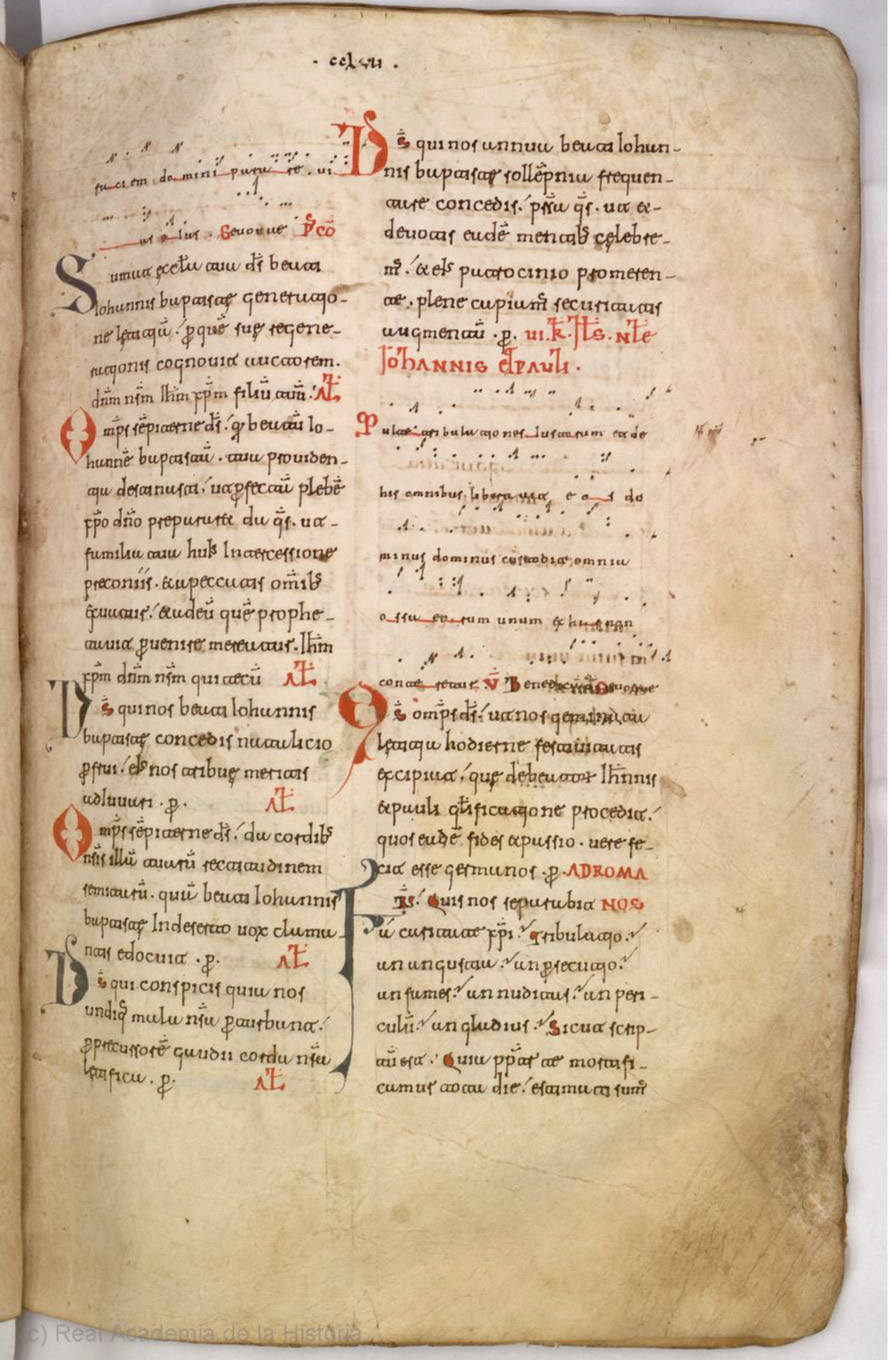 · cclvii ·
faciem domini parare vi
as eius . Seuouae P̄cō
Sumat ęccl̄a tua d̄s beati
Iohannis babtistę generatio-
ne lętitiā. p̱ quē suę regene-
rationis cognovit auctorem.
dn̄m nsm ih̄m xp̄m filiū tuū. AL̄
Omp̄s sēpiterne d̄s. q̱ beatū Io-
hannē babtistā . tua providen-
tia destinasti. ut p̱fectā plebē
xp̄o dn̄o prepararet. da q̄s. ut
familia tua huiꝰ intercessione
preconiis. et a peccatis om̄ibꝰ
exuatur. et ad eū quē prophe-
tavit p̱venire mereatur. Ih̄m
xp̄m dn̄m nsm qui tecū AL̄
D̄s qui nos beati Iohannis
babtistę concedis natalicio
p̱frui. eiꝰ nos tribue meritis
adiuvari . p̱. AL̄
Omp̄s sēpiterne d̄s. da cordibꝰ
ns̄is illā tuarū rectitudinem
semitarū. quā beati Iohannis
babtistę in deserto vox clama
ntis edocuit . p̱. AL̄
D̄s qui conspicis quia nos
undiq̱ mala ns̄a p̱turbant.
p̱precursorē gaudii corda ns̄a
lętifica . p̱. AL̄
D̄s qui nos annua beati Iohan-
nis babtistę sollēpnia frequen-
tare concedis. p̄sta q̄s . ut et de-
votis eadē mentibꝰ cęlebre-
m̄. et eiꝰ patrocinio promeren-
te . plene capiam̄ securitatis
augmentū . p̱. VI. K. JLS. NL̄E
IOHANNIS ET PAULI .
Multe tribulationes iustorum et de
his omnibus liberavit eos do
minus dominus custodit omnia
ossa eorum unum ex his non
conteretur V̄ Benedicā
Q̄s omp̄s d̄s. ut nos geminata
lętitia hodierne festivitatis
excipiat. quę de beator̄ Ih̄nnis
et pauli gl̄ificatione procedit.
quos eadē fides et passio . vere fe-
cit esse germanos . p̱. AD ROMA
NOS
FR̄S. Quis nos separabit
a caritate xp̄i. Tribulatio.
an angustia. an p̱secutio.
an fames. an nuditas. an peri-
culū. an gladius. Sicut scrip-
tū est . Quia pp̄ter te mortifi-
camus tota die. estimati sum̄